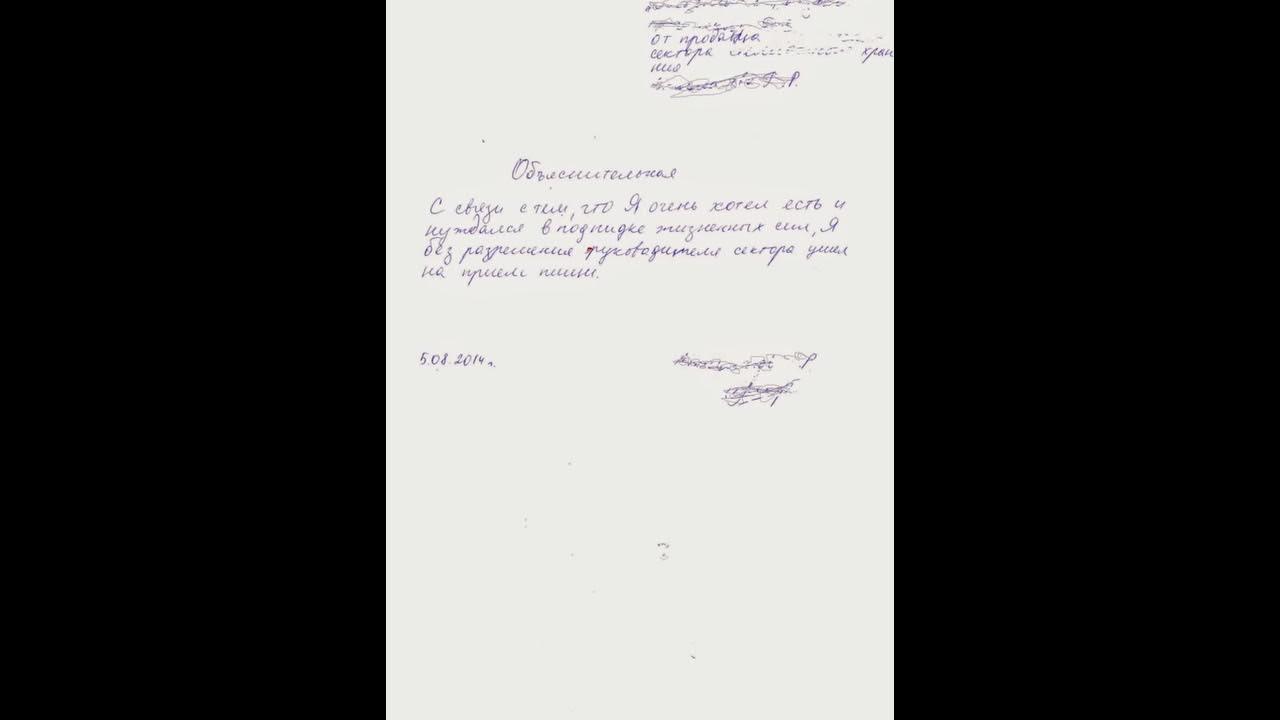 от пробатца
сектора хран
ния
Р.
Объяснительная
С связи с тем, что Я очень хотел есть и
нуждался в подпидке жизненных сил, Я
без разрешения руководителя сектора ушел
на прием пищи.
5.08.2014г. Р